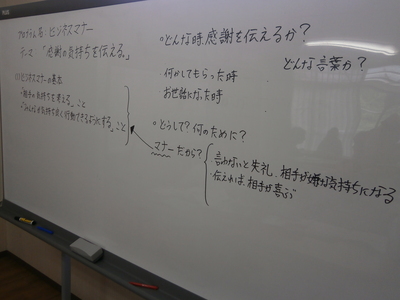 プログラム名:ビジネスマナー
テーマ:「感謝の気持ちを伝える。」
◎ビジネスマナーの基本
・「相手の気持ちを考える。」こと
・「みんなが気持ち良く行動できるようにする。」こと
◦どんな時、感謝を伝えるか?
どんな言葉か?
・何かしてもらった時
・お世話になった時
◦どうして?何のために?
マナーだから?
言わないと失礼、相手が嫌な気持ちになる
伝えれば、相手が喜ぶ